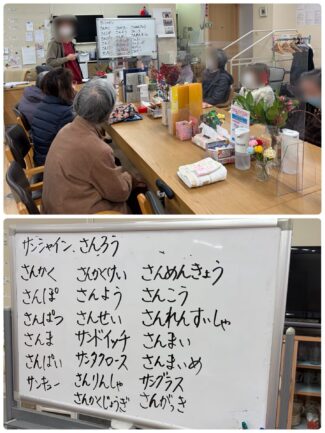 サンシャイン、さんろう
さんかく さんかくけい さんめんきょう
さんぽ さんよう さんこう
さんぱつ さんせい さんれんすいしゃ
さんま サンドイッチ さんまい
さんぱい サンタクロース さんまいめ
サンキュー さんりんしゃ サングラス
さんかくじょうぎ さんがっき